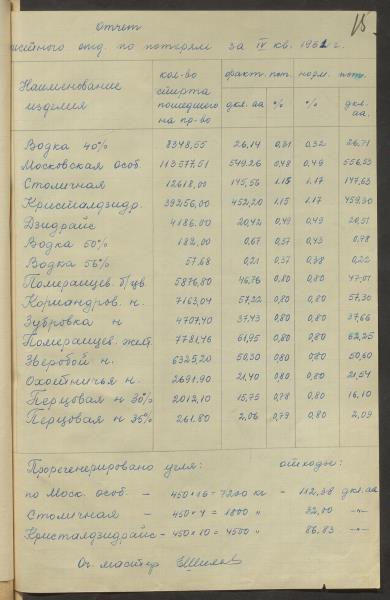 15.
Отчет
по потерям за IV кв. 1961 г.
Наименование изделия кол-во спирта пошедшего на пр-во факт. пот. дкл. аа % норм. % пот. дкл. аа.
Водка 40% 8348,55 26,14 0,31 0,32 26,71
Московская особ. 113577,51 549,26 0,48 0,49 556,53
Столичная 12618,00 145,56 1.15 1.17 147,63
Кристалдзидр. 39256,00 452,20 1.15 1.17 459,30
Дзидрайс 4186.00 20,42 0,49 0,49 20,51
Водка 50% 182,00 0,67 0,37 0,43 0,78
Водка 56% 57.68 0,21 0,37 0,38 0,22
Померанцев. б/цв. 5876,80 46,76 0,80 0,80 47,01
Кориандров. н. 7163,04 57,22 0,80 0,80 57,30
Зубровка н 4707,40 37.43 0,80 0,80 37,66
Померанцев. желт. 7781.46 61,95 0,80 0,80 62,25
Зверобой н. 6325,20 50,30 0,80 0,80 50,60
Охотничья н. 2691.90 21,40 0,80 0,80 21,54
Перцовая н 30% 2012,10 15,75 0,78 0,80 16,10
Перцовая н 35% 261.80 2,06 0,79 0,80 2,09
Прорегенерировано угля: отходы:
по Моск. особ. – 450×16 = 7200 кг – 112,38 дкл. аа
Столичная – 450×4 = 1800 " 32,00 –"–
Кристалдзидрайс – 450×10 = 4500 " 86,83 –"–
Ст. мастер